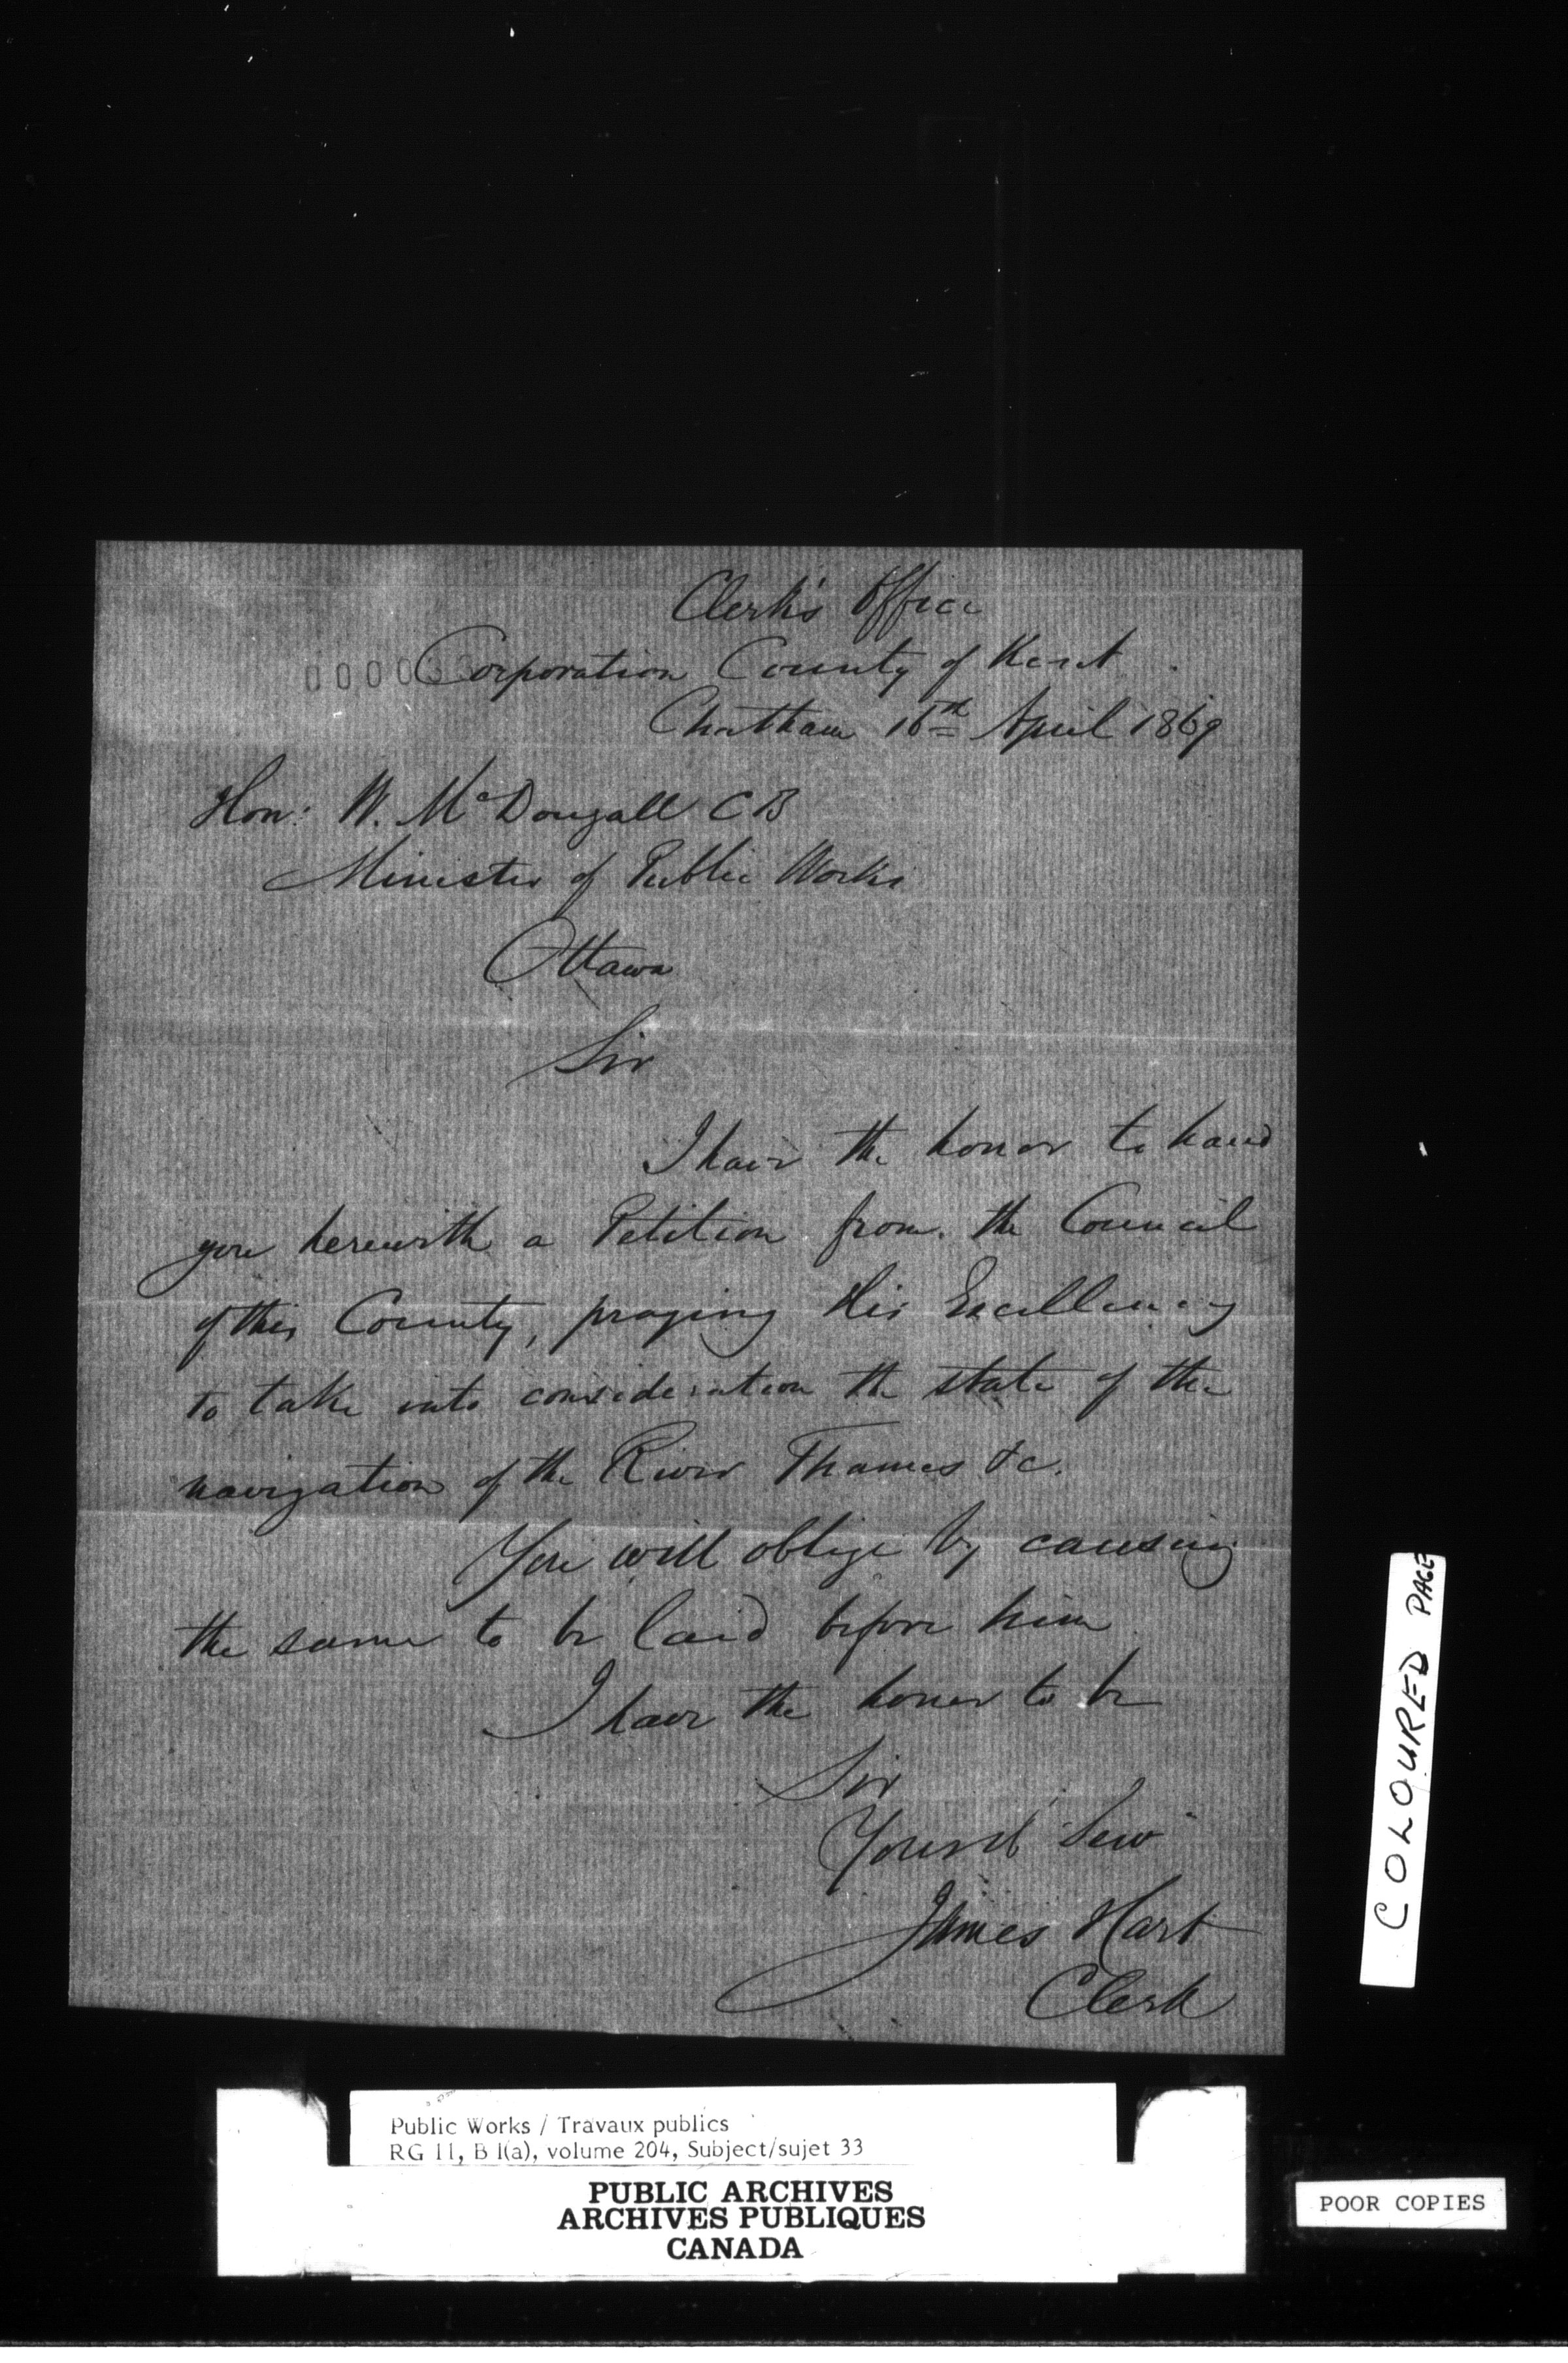 Clerk's Office
0000
Corporation County of Kent
Chatham 16th April 1869
Hon: W. McDougall CB
Minister of Public Works
Ottawa
Sir
I have the honor to hand
you herewith a Petition from the Council
of this County, praying His Excellency
to take into consideration the state of the
navigation of the River Thames &c.
You will oblige by causing
the same to be laid before him
I have the honor to be
Sir
Your Serv
James Hart
Clerk
COLOURED PAGE
Public Works / Travaux publics
RG 11, B 1(a), volume 204, Subject/sujet 33
PUBLIC ARCHIVES
ARCHIVES PUBLIQUES
CANADA
POOR COPIES